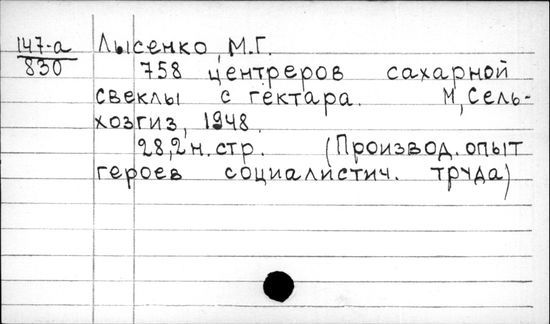 147-а Лысенко, М.Г.
830 758 центреров сахарной
свеклы с гектара. М, Сель-
хозгиз, 1948.
28,2н.стр. (Производ. опыт
героев социалистич. труда)